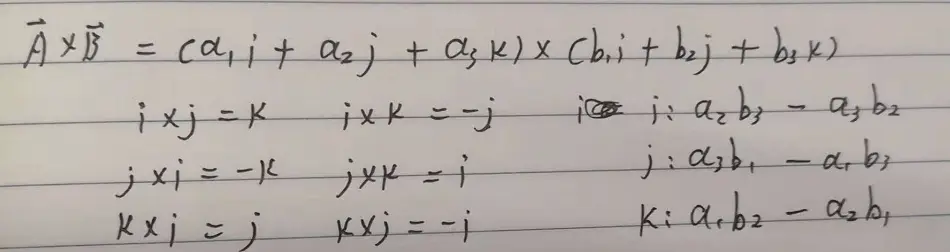 A⃗ × B⃗ = (a₁i + a₂j + a₃k) × (b₁i + b₂j + b₃k)
i × j = k i × k = -j i: a₂b₃ - a₃b₂
j × i = -k j × k = i j: a₃b₁ - a₁b₃
k × i = j k × j = -i k: a₁b₂ - a₂b₁